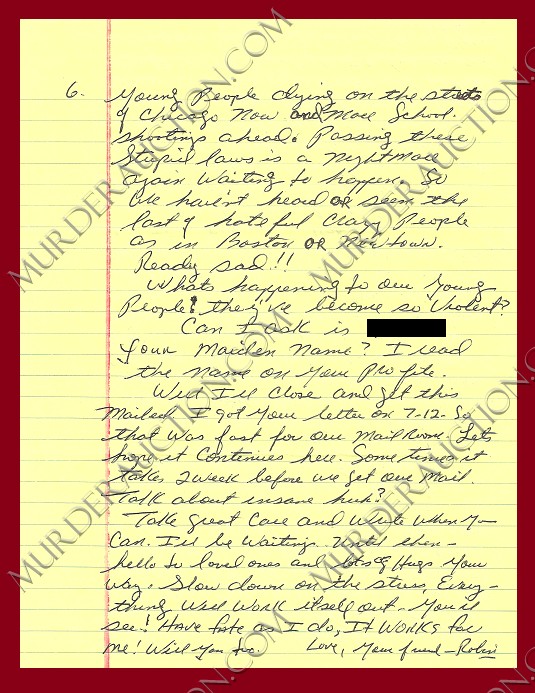 6. Young People dying on the streets
of Chicago Now and More School
shootings ahead. Passing these
Stupid laws is a nightmare
again Waiting to happen. So
We haven't heard OR seen the
last of hateful Crazy People
as in Boston OR Newtown.
Ready sad!!
Whats happening to our Young
People? they've become so Violent?
Can I ask is
your Maiden Name? I read
the name on your profile.
Well I'll Close and get this
Mailed. I got Your letter on 7-12. So
that was fast for our Mail Room. Lets
hope it Continues here. Sometimes it
takes 2 week before we get our Mail.
Talk about insane huh?
Take great Care and Write When You
Can. I'll be Waiting. Until then -
hello to loved ones and lots of Hugs Your
Way. Slow down on the stress, Every-
thing Will Work itself out - You'll
see! Have fate as I do, It WORKS for
me! Will You too. Love, Your friend - Robin
MURDERAUCTION.COM